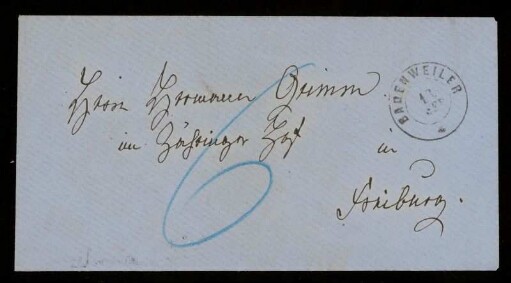 Herrn Hermann Grimm
im Zähringer Hof
in
Freiburg.
6
BADENWEILER